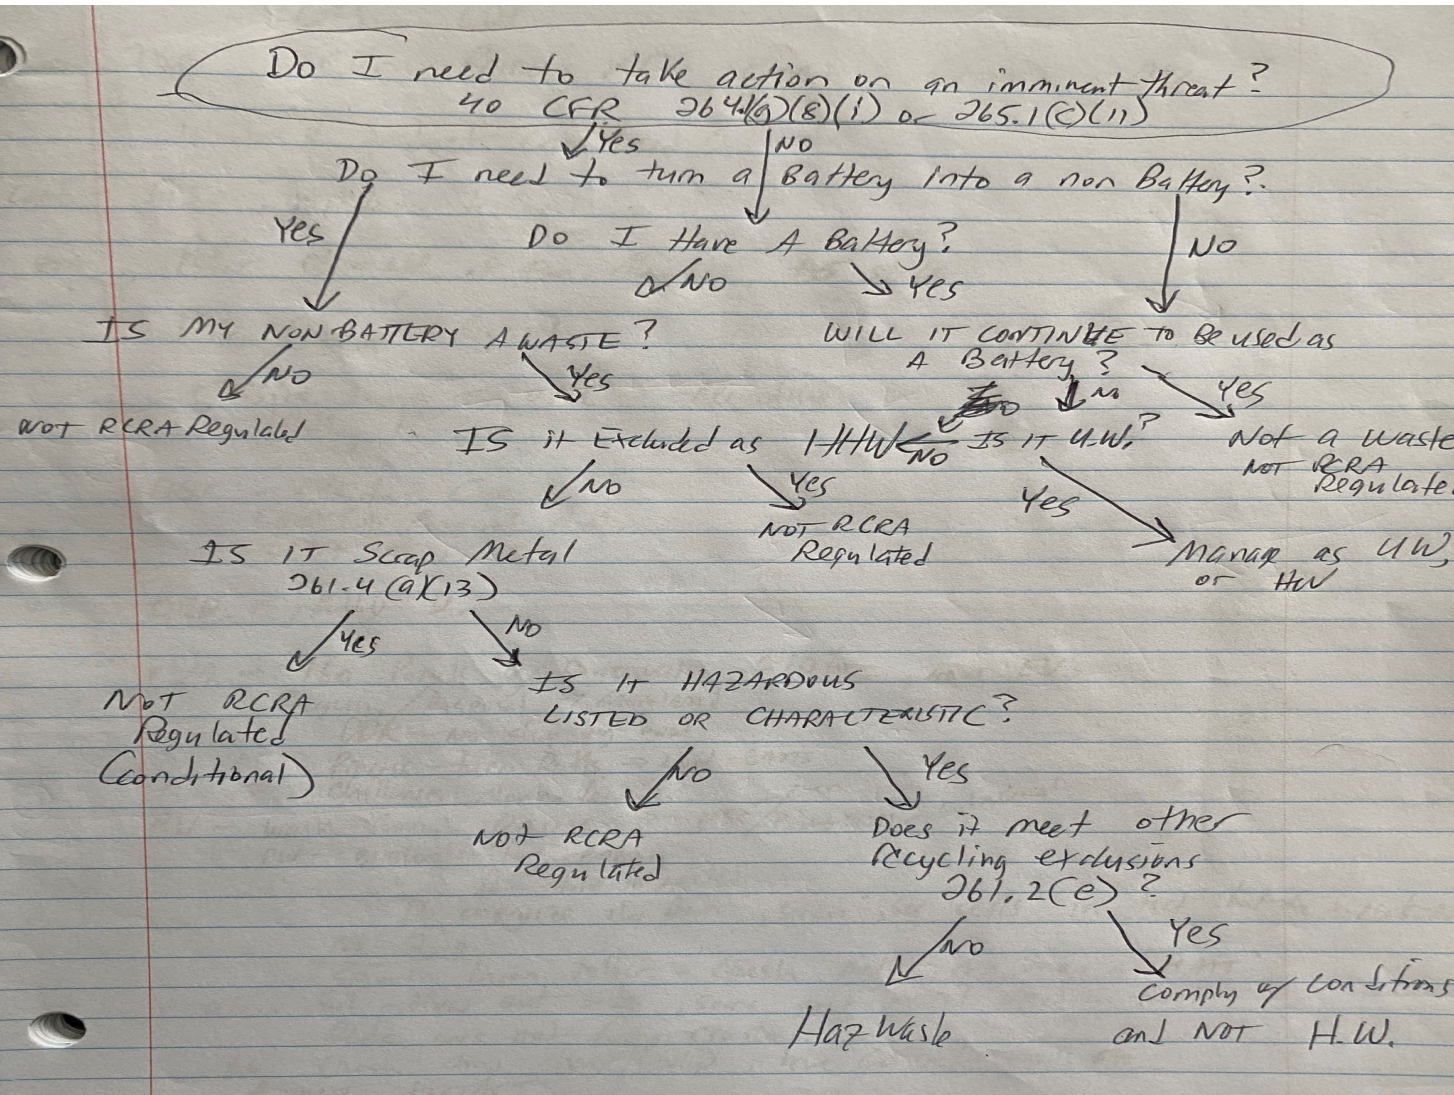 Do I need to take action on an imminent threat?
40 CFR 264.1(g)(8)(i) or 265.1(c)(11)
Yes NO
Do I need to turn a Battery into a non Battery?
Yes
Do I Have A Battery?
NO
NO Yes
IS MY NON BATTERY A WASTE?
WILL IT CONTINUE TO Be used as
A Battery?
NO Yes
No Yes
NOT RCRA Regulated
IS it Excluded as HHW
NO
IS IT U.W.?
Not a waste
NOT RCRA
Regulate
NO Yes
Yes
NOT RCRA
Regulated
Manage as UW,
or HW
IS IT Scrap Metal
261.4(a)(13)
Yes NO
NOT RCRA
Regulated
(conditional)
IS IT HAZARDOUS
LISTED OR CHARACTERISTIC?
NO Yes
NOt RCRA
Regulated
Does it meet other
recycling exclusions
261.2(e)?
NO Yes
Haz Waste
comply w/ conditions
and NOT H.W.